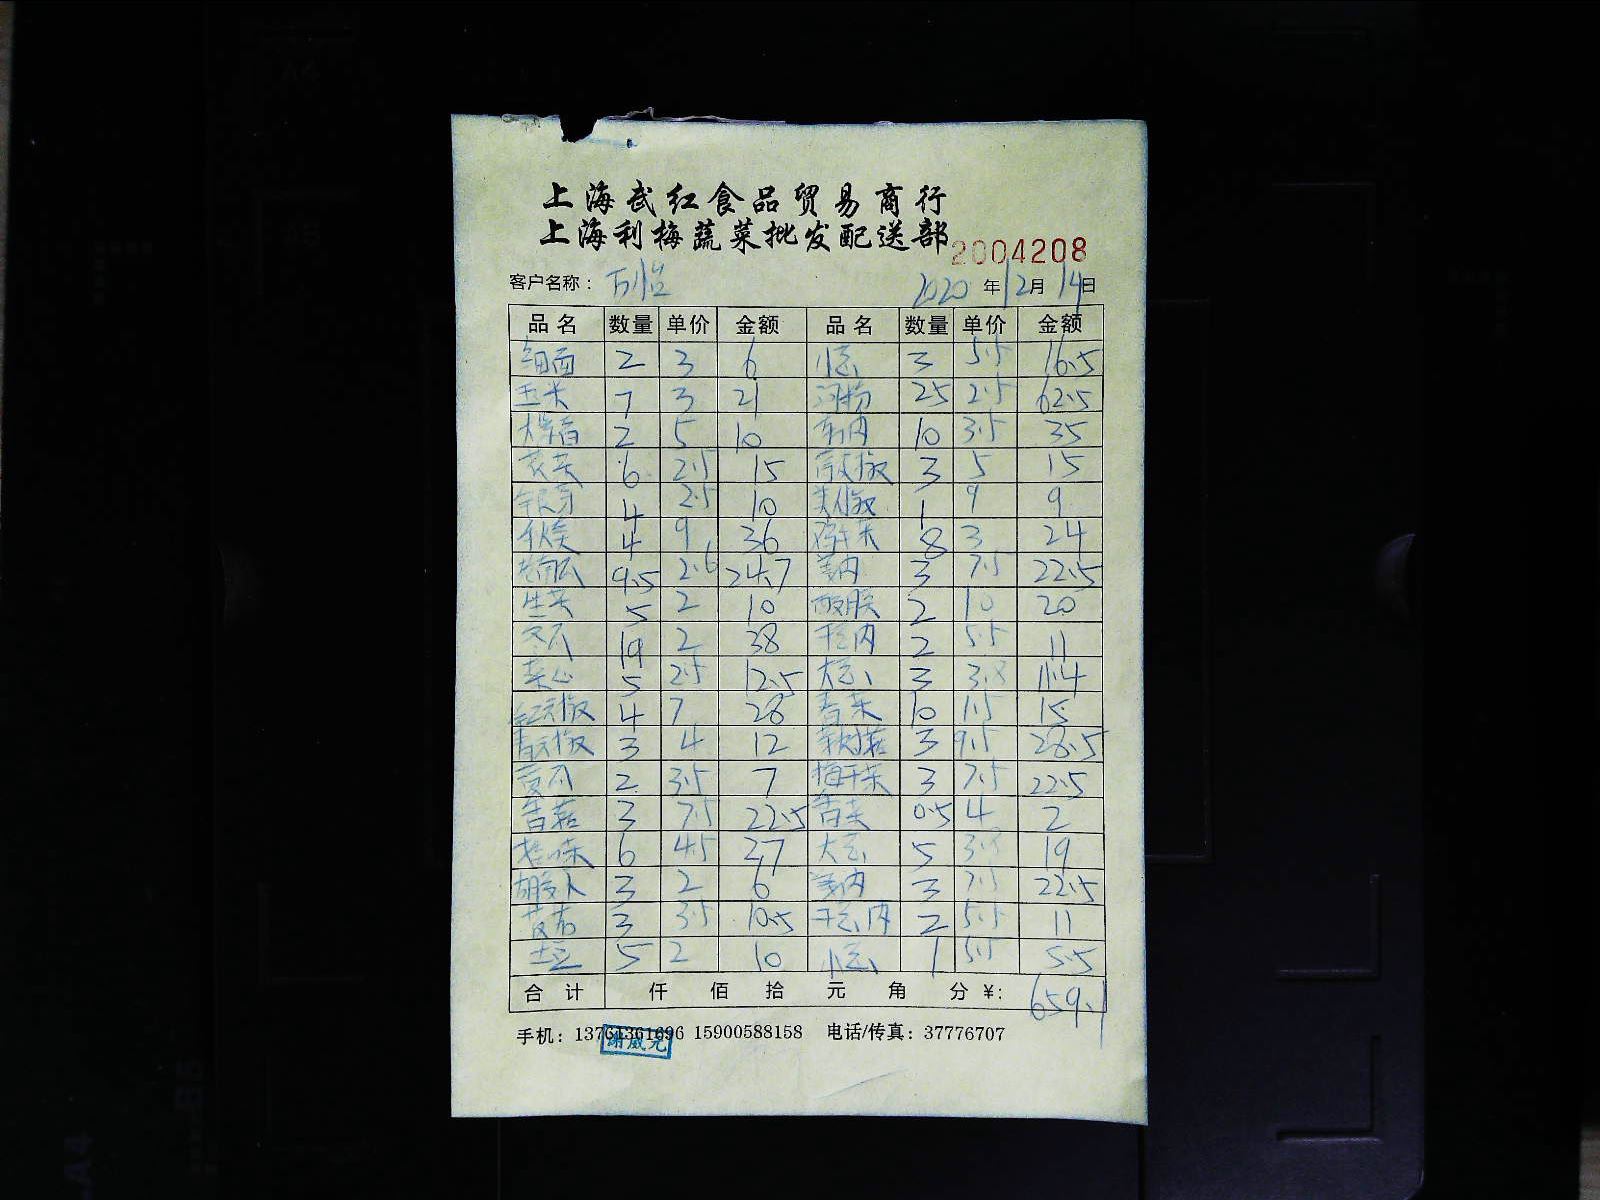 上海武红食品贸易商行
上海利梅蔬菜批发配送部
2004208
客户名称： 万怡 2020 年 12 月 14 日
品名 数量 单价 金额 品名 数量 单价 金额
细面 2 3 6 小葱 3 5.5 16.5
玉米 7 3 21 河粉 25 2.5 62.5
2 5 10 10 3.5 35
6 2.5 15 3 5 15
银芽 4 2.5 10 美人椒 1 9 9
4 9 36 8 3 24
老南瓜 9.5 2.6 24.7 姜肉 3 7.5 22.5
生菜 5 2 10 2 10 20
冬瓜 19 2 38 干葱肉 2 5.5 11
菜心 5 2.5 12.5 大葱 3 3.8 11.4
红尖椒 4 7 28 青菜 10 1.5 15
青尖椒 3 4 12 3 9.5 28.5
黄瓜 2 3.5 7 梅干菜 3 7.5 22.5
香菇 3 7.5 22.5 香菜 0.5 4 2
6 4.5 27 大葱 5 3.8 19
胡萝卜 3 2 6 姜肉 3 7.5 22.5
番茄 3 3.5 10.5 干葱肉 2 5.5 11
土豆 5 2 10 小葱 1 5.5 5.5
合计 仟 佰 拾 元 角 分 ¥: 659.1
手机：13761361696 15900588158 电话/传真：37776707
谢威克